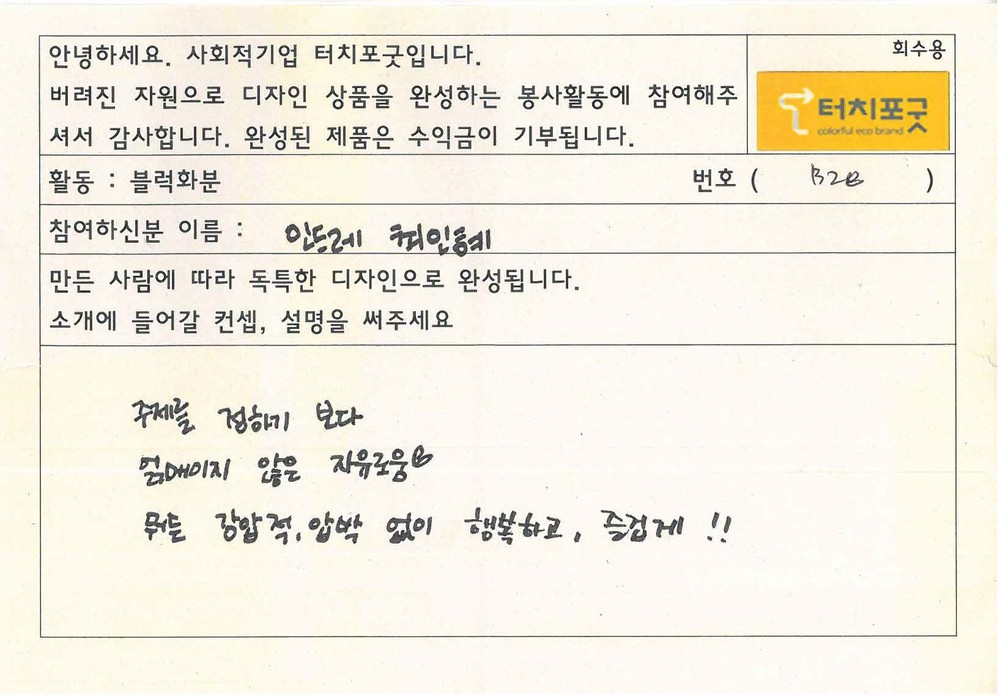 회수용
안녕하세요. 사회적기업 터치포굿입니다.
버려진 자원으로 디자인 상품을 완성하는 봉사활동에 참여해주
셔서 감사합니다. 완성된 제품은 수익금이 기부됩니다.
터치포굿
colorful eco brand
활동 : 블럭화분
번호 ( B2B )
참여하신분 이름 : 안드레
만든 사람에 따라 독특한 디자인으로 완성됩니다.
소개에 들어갈 컨셉, 설명을 써주세요
주제를 정하기 보다
얽매이지 않은 자유로움
뭐든 강압적, 압박 없이 행복하고, 즐겁게 !!